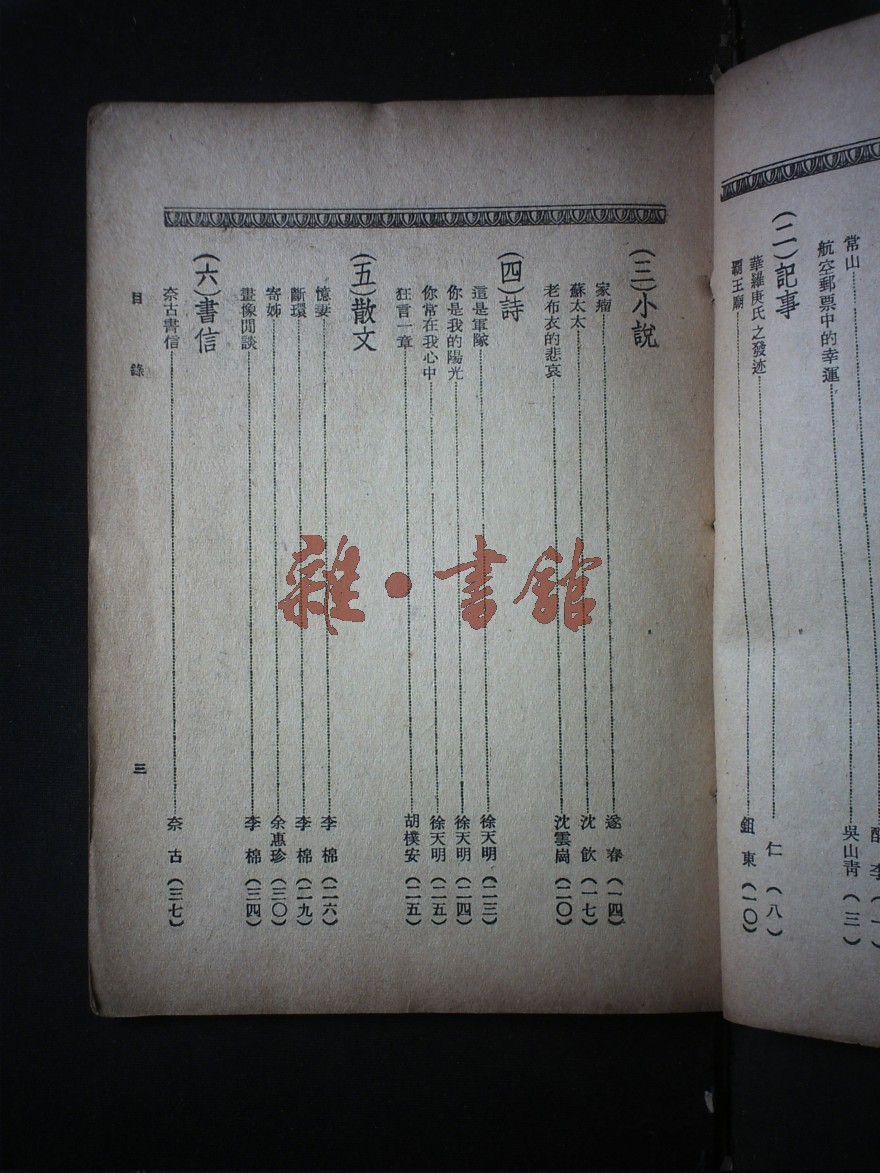 常山
吳山青（三）
航空郵票中的幸運
（二）記事
華羅庚氏之發迹 仁（八）
霸王廟 鈕東（一〇）
（三）小說
家瘤 遂春（一四）
蘇太太 沈飲（一七）
老布衣的悲哀 沈雲崗（二〇）
（四）詩
這是軍隊 徐天明（二三）
你是我的陽光 徐天明（二四）
你常在我心中 徐天明（二五）
狂言一章 胡樸安（二五）
（五）散文
憶妻 李棉（二六）
斷環 李棉（二九）
寄姊 余惠珍（三〇）
畫像閒談 李棉（三四）
（六）書信
奈古書信 奈古（三七）
目錄 三
雜·書館